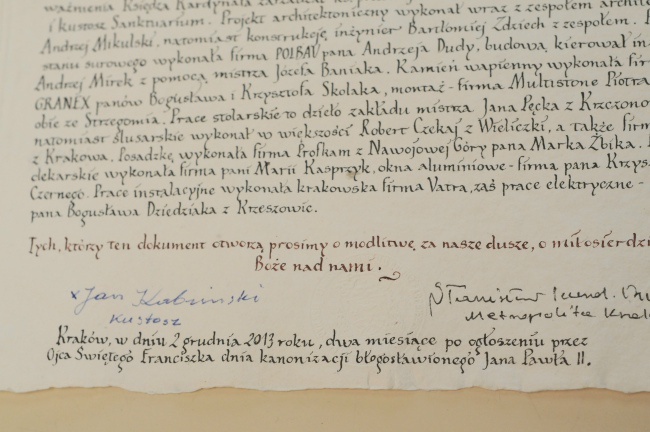 ważnienia Księdza Kardynała
i kustosz Sanktuarium. Projekt architektoniczny wykonał wraz z zespołem archite
Andrzej Mikulski, natomiast konstrukcję, inżynier Bartłomiej Zdziech z zespołem.
stanu surowego wykonała firma POLBAU pana Andrzeja Dudy, budową kierował in
Andrzej Mirek z pomocą mistrza Józefa Baniaka. Kamień wapienny wykonała fir
GRANEX panów Bogusława i Krzysztofa Skolaka, montaż - firma Multistone Piotra
obie ze Strzegomia. Prace stolarskie to dzieło zakładu mistrza Jana Pęcka z Krzczono
natomiast ślusarskie wykonał w większości Robert Czekaj z Wieliczki, a także firm
z Krakowa. Posadzkę wykonała firma Profkam z Nawojowej Góry pana Marka Żbika.
dekarskie wykonała firma pani Marii Kasprzyk, okna aluminiowe - firma pana Krzys
Czernego. Prace instalacyjne wykonała krakowska firma Vatra, zaś prace elektryczne -
pana Bogusława Dziedziaka z Krzeszowic.
Tych, którzy ten dokument otworzą prosimy o modlitwę za nasze dusze, o miłosierdzi
Boże nad nami.
x Jan Kabziński
Kustosz
Stanisław
Metropolita Krak
Kraków, w dniu 2 grudnia 2013 roku, dwa miesiące po ogłoszeniu przez
Ojca Świętego Franciszka dnia kanonizacji błogosławionego Jana Pawła II.